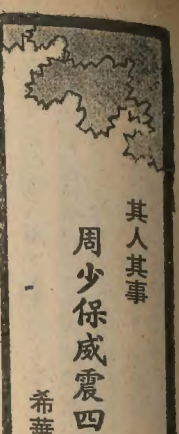 其人其事
周少保威震四
希華